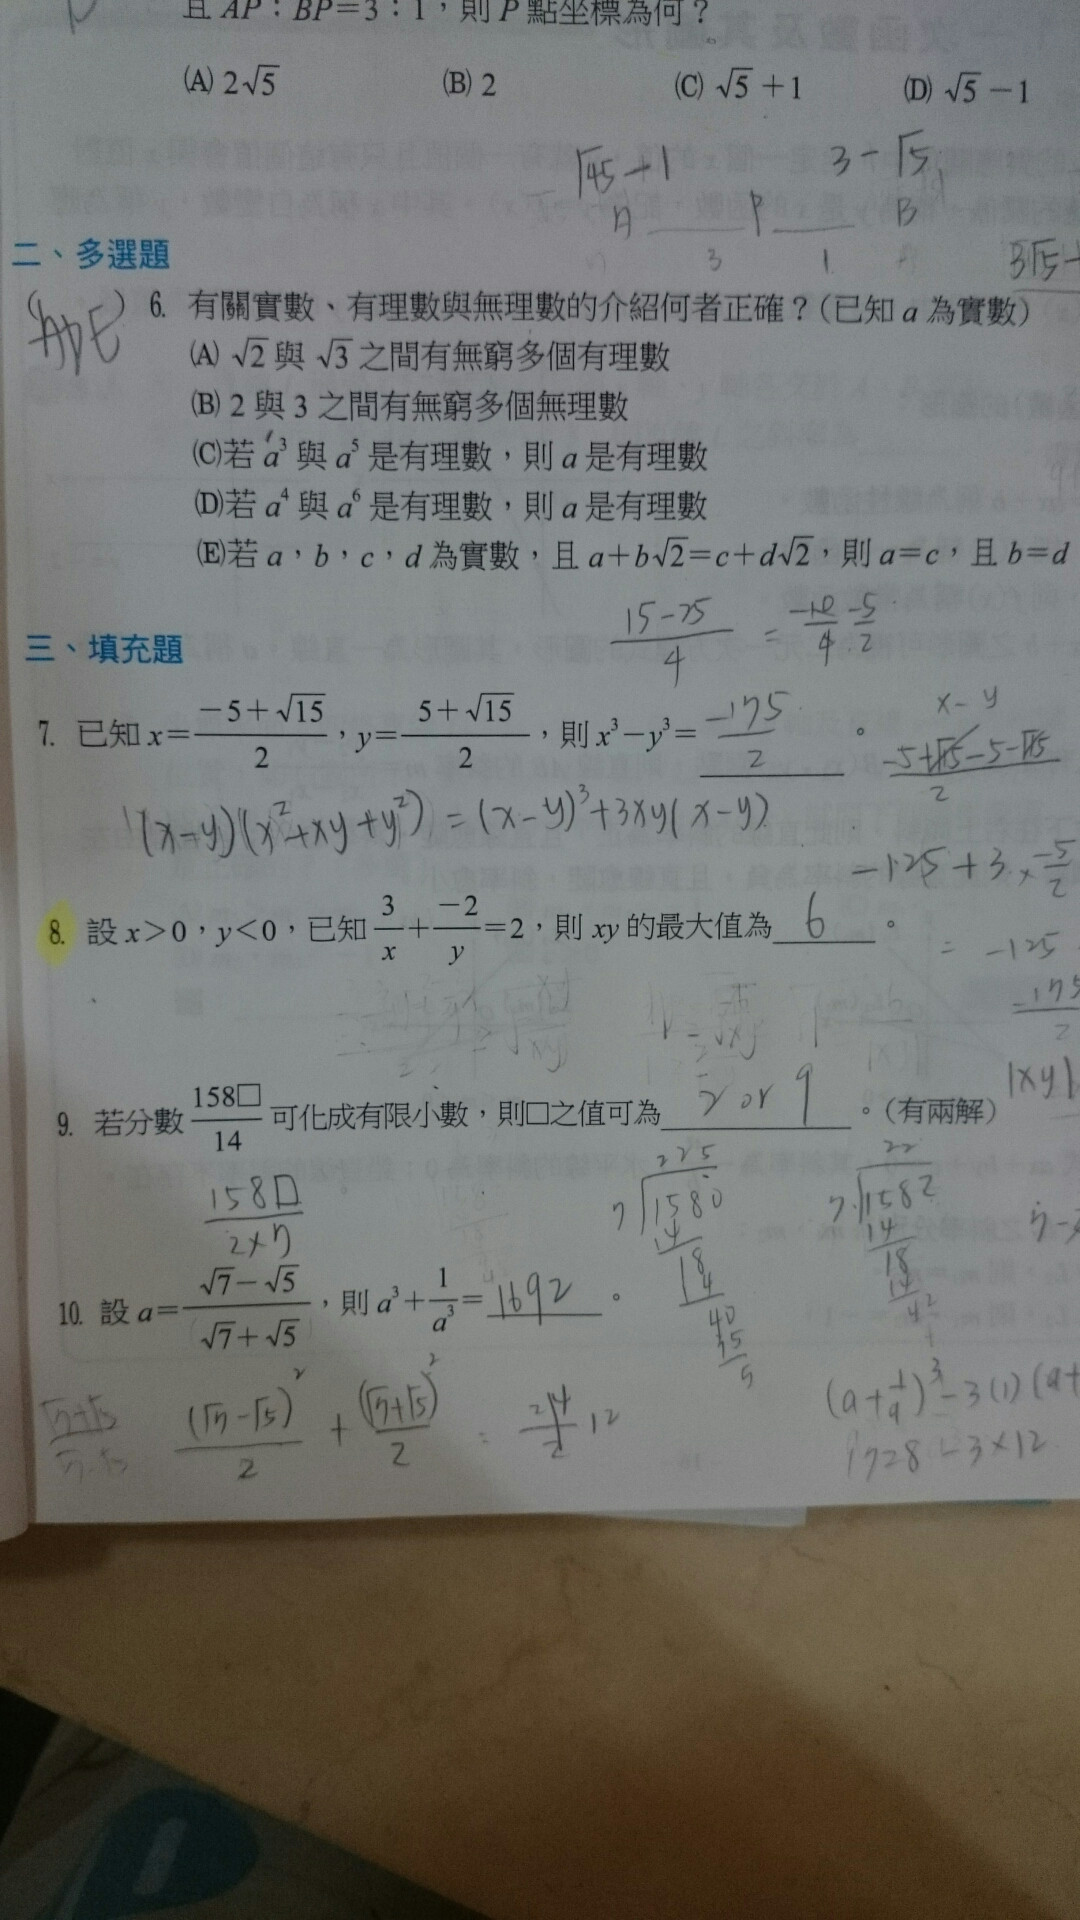 且 AP：BP=3：1，則 P 點坐標為何？
(A) 2√5 (B) 2 (C) √5 +1 (D) √5 −1
√45 + 1 3 − √5
A P B
3 1
3√5
二、多選題
6. 有關實數、有理數與無理數的介紹何者正確？(已知 a 為實數)
(A) √2 與 √3 之間有無窮多個有理數
(B) 2 與 3 之間有無窮多個無理數
(C)若 a³ 與 a⁵ 是有理數，則 a 是有理數
(D)若 a⁴ 與 a⁶ 是有理數，則 a 是有理數
(E)若 a，b，c，d 為實數，且 a+b√2=c+d√2，則 a=c，且 b=d
15−25/4 = −10/4 −5/2
三、填充題
7. 已知 x=(−5+√15)/2，y=(5+√15)/2，則 x³−y³= −175/2 。
x−y
−5+√15−5−√15/2
(x−y)(x²+xy+y²) = (x−y)³+3xy(x−y)
−125+3×−5/2
8. 設 x>0，y<0，已知 3/x + −2/y =2，則 xy 的最大值為 6 。
= −125
= 175/2
|xy|
9. 若分數 158□/14 可化成有限小數，則□之值可為 2 or 9 。(有兩解)
158□/2×7
225
7 1580
14
18
14
40
35
5
22
7 1582
14
18
14
42
10. 設 a=(√7−√5)/(√7+√5)，則 a³+1/a³= 1692 。
(√7−√5)²/2 + (√7+√5)²/2 = 24/2 12
(a+1/a)³−3(1)(a+
1728−3×12